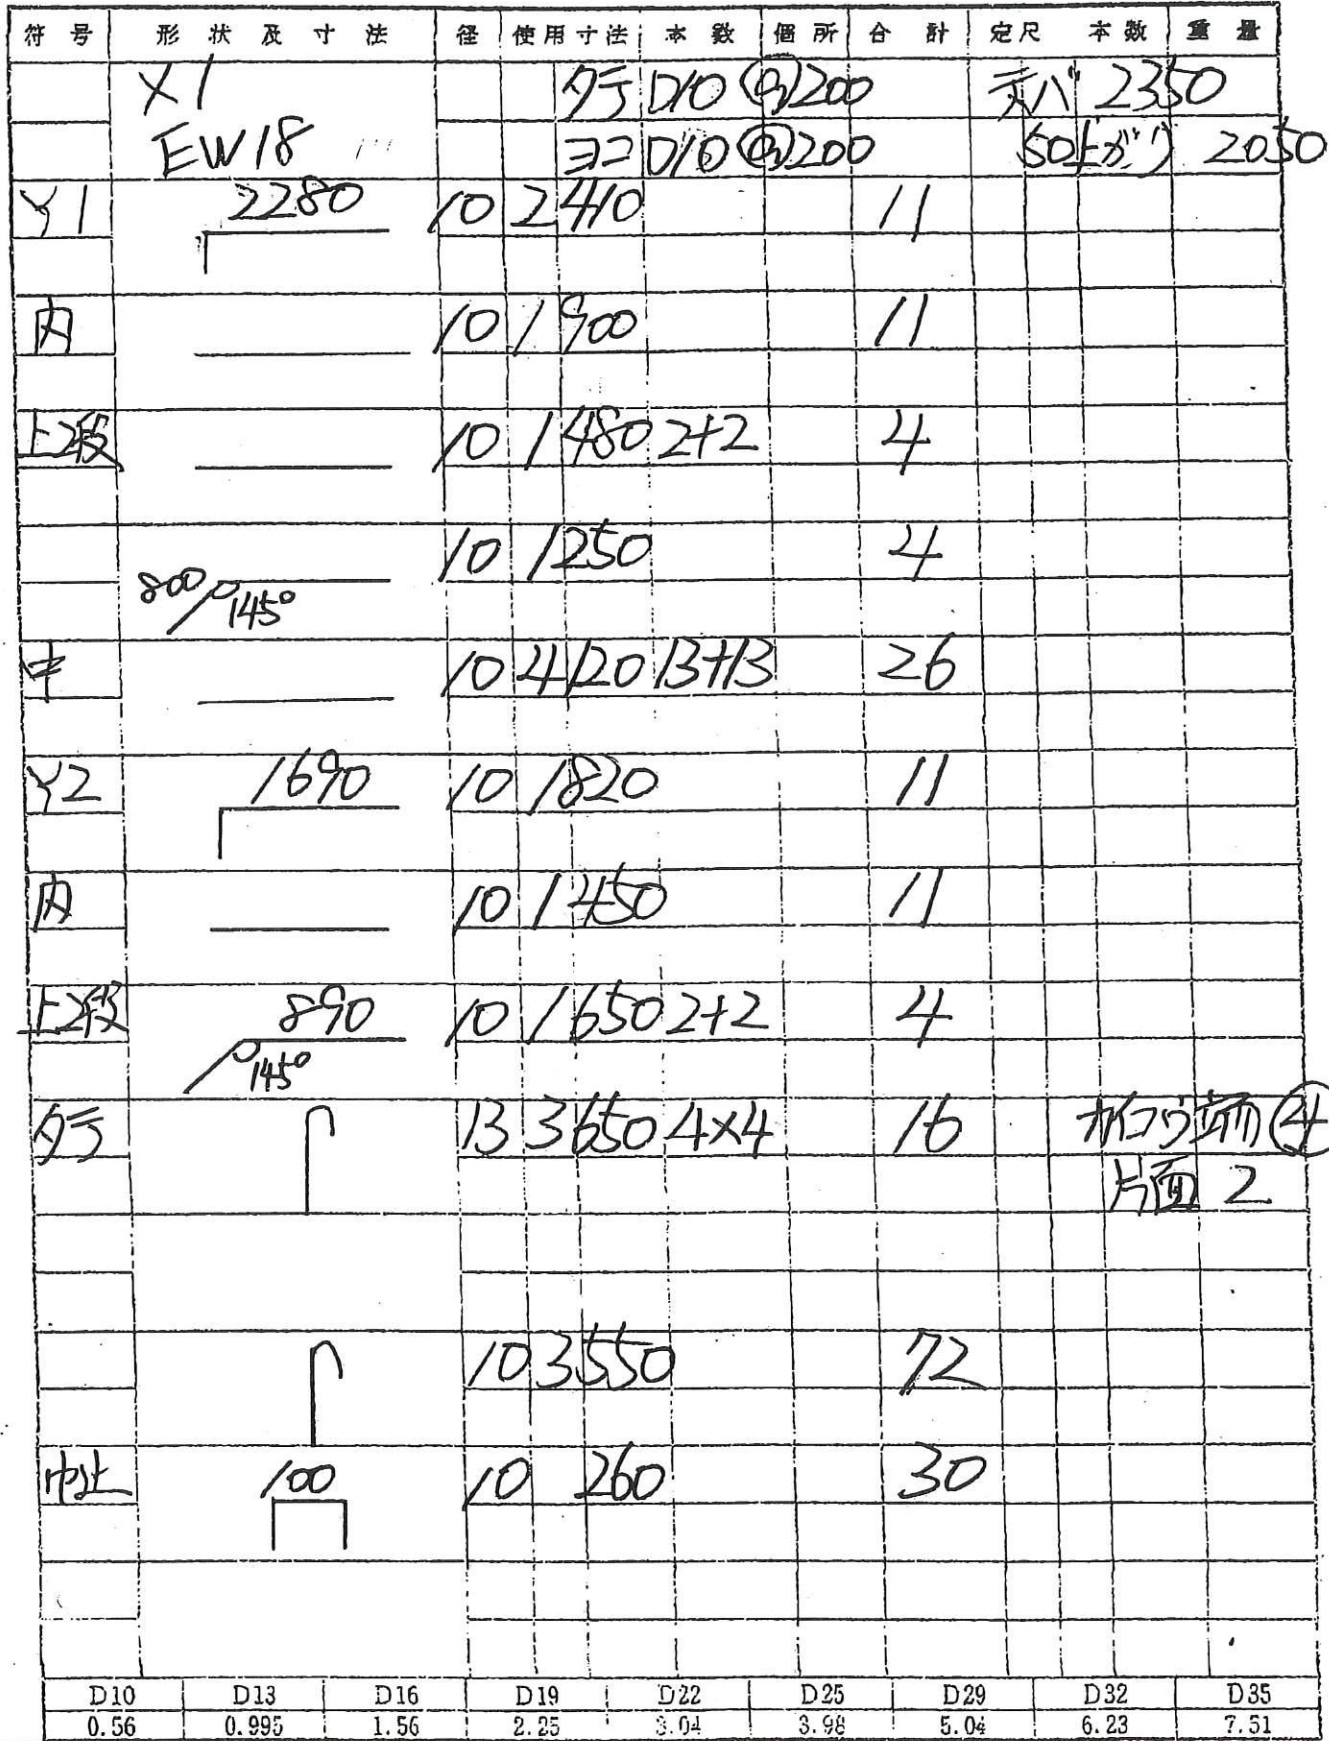 符号 形状及寸法 径 使用寸法 本数 個所 合計 定尺 本数 重量
X1 タテ D10 @200 テバ 2350
EW18 ヨコ D10 @200 50上がり 2050
Y1 2280 10 2410 11
内 10 1900 11
上2段 10 1480 2+2 4
10 1250 4
800 145°
中 10 4120 13+13 26
Y2 1690 10 1820 11
内 10 1450 11
上2段 890 10 1650 2+2 4
145°
タテ 13 3650 4×4 16 カイコウ ④
片面 2
10 3550 72
巾止 100 10 260 30
D10 D13 D16 D19 D22 D25 D29 D32 D35
0.56 0.995 1.56 2.25 3.04 3.98 5.04 6.23 7.51